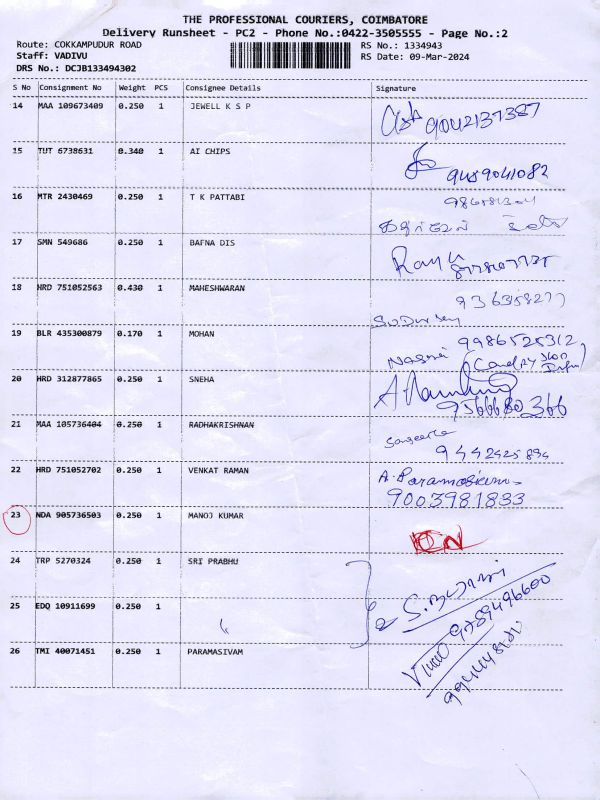 THE PROFESSIONAL COURIERS, COIMBATORE
Delivery Runsheet - PC2 - Phone No.:0422-3505555 - Page No.:2
Route: COKKAMPUDUR ROAD RS No.: 1334943
Staff: VADIVU RS Date: 09-Mar-2024
DRS No.: DCJB133494302
S No Consignment No Weight PCS Consignee Details Signature
14 MAA 109673409 0.250 1 JEWELL K S P
9042137387
15 TUT 6738631 0.340 1 AI CHIPS
9489041082
16 MTR 2430469 0.250 1 T K PATTABI
17 SMN 549686 0.250 1 BAFNA DIS
18 HRD 751052563 0.430 1 MAHESHWARAN
19 BLR 435300879 0.170 1 MOHAN
9986525312
20 HRD 312877865 0.250 1 SNEHA
9566680366
21 MAA 105736404 0.250 1 RADHAKRISHNAN
9442425894
22 HRD 751052702 0.250 1 VENKAT RAMAN
9003981833
23 NDA 905736503 0.250 1 MANOJ KUMAR
24 TRP 5270324 0.250 1 SRI PRABHU
25 EDQ 10911699 0.250 1
9789496600
26 TMI 40071451 0.250 1 PARAMASIVAM